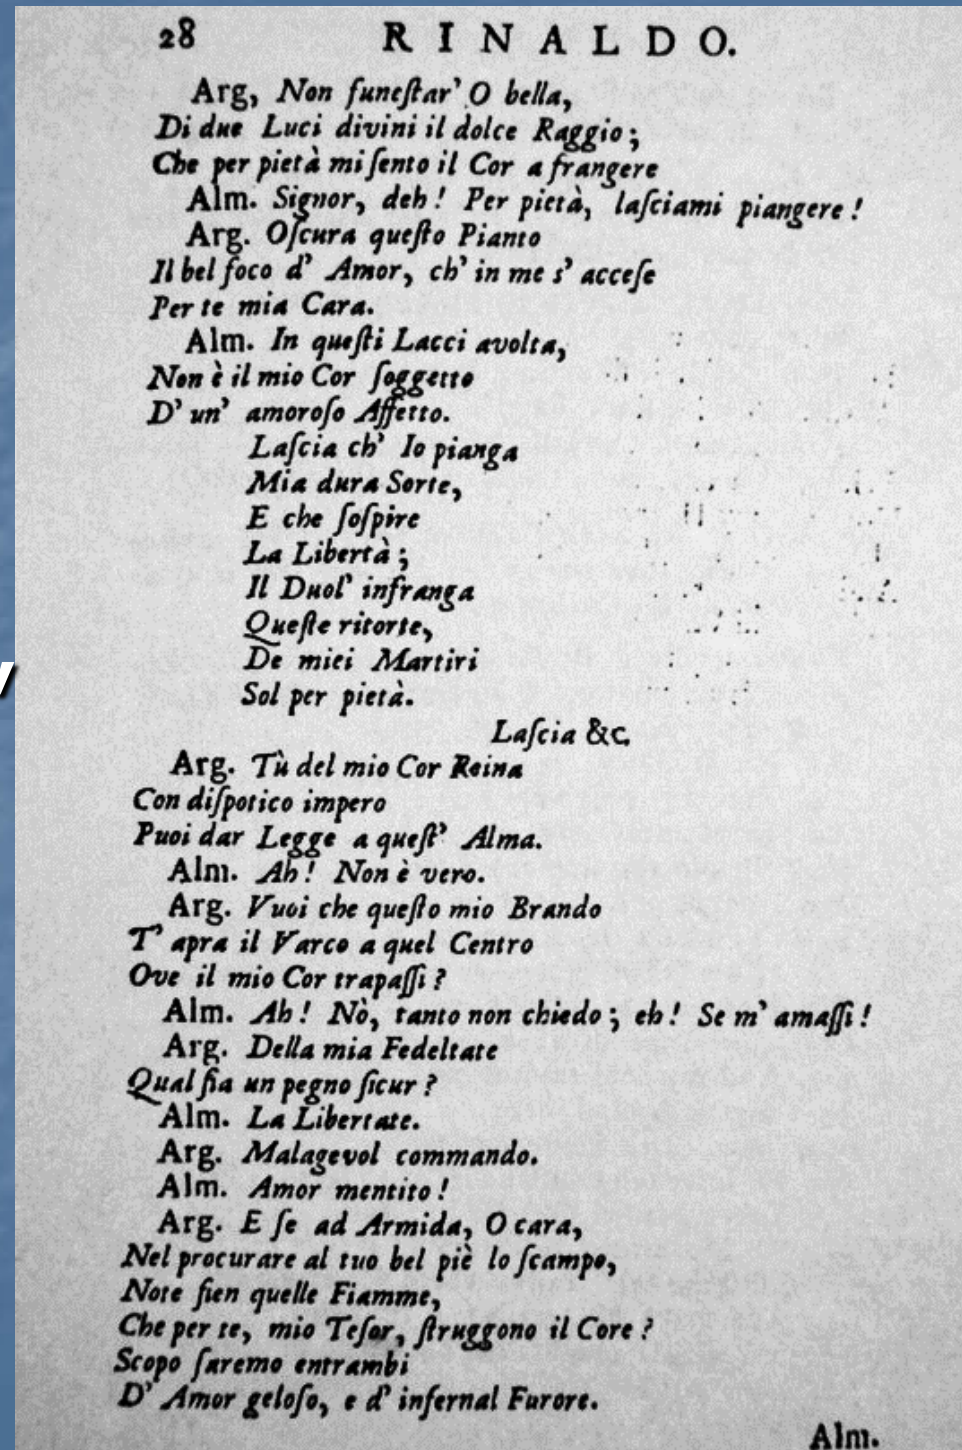 28 RINALDO.
Arg, Non funeſtar' O bella,
Di due Luci divini il dolce Raggio;
Che per pietà mi ſento il Cor a frangere
Alm. Signor, deh! Per pietà, laſciami piangere!
Arg. Oſcura queſto Pianto
Il bel foco d' Amor, ch' in me s' acceſe
Per te mia Cara.
Alm. In queſti Lacci avolta,
Non è il mio Cor ſoggetto
D' un' amoroſo Affetto.
Laſcia ch' Io pianga
Mia dura Sorte,
E che ſoſpire
La Libertà;
Il Duol' infranga
Queſte ritorte,
De miei Martiri
Sol per pietà.
Laſcia &c.
Arg. Tù del mio Cor Reina
Con diſpotico impero
Puoi dar Legge a queſt' Alma.
Alm. Ah! Non è vero.
Arg. Vuoi che queſto mio Brando
T' apra il Varco a quel Centro
Ove il mio Cor trapaſſi?
Alm. Ah! Nò, tanto non chiedo; eh! Se m' amaſſi!
Arg. Della mia Fedeltate
Qual fia un pegno ſicur?
Alm. La Libertate.
Arg. Malagevol commando.
Alm. Amor mentito!
Arg. E ſe ad Armida, O cara,
Nel procurare al tuo bel piè lo ſcampo,
Note fien quelle Fiamme,
Che per te, mio Teſor, ſtruggono il Core?
Scopo ſaremo entrambi
D' Amor geloſo, e d' infernal Furore.
Alm.